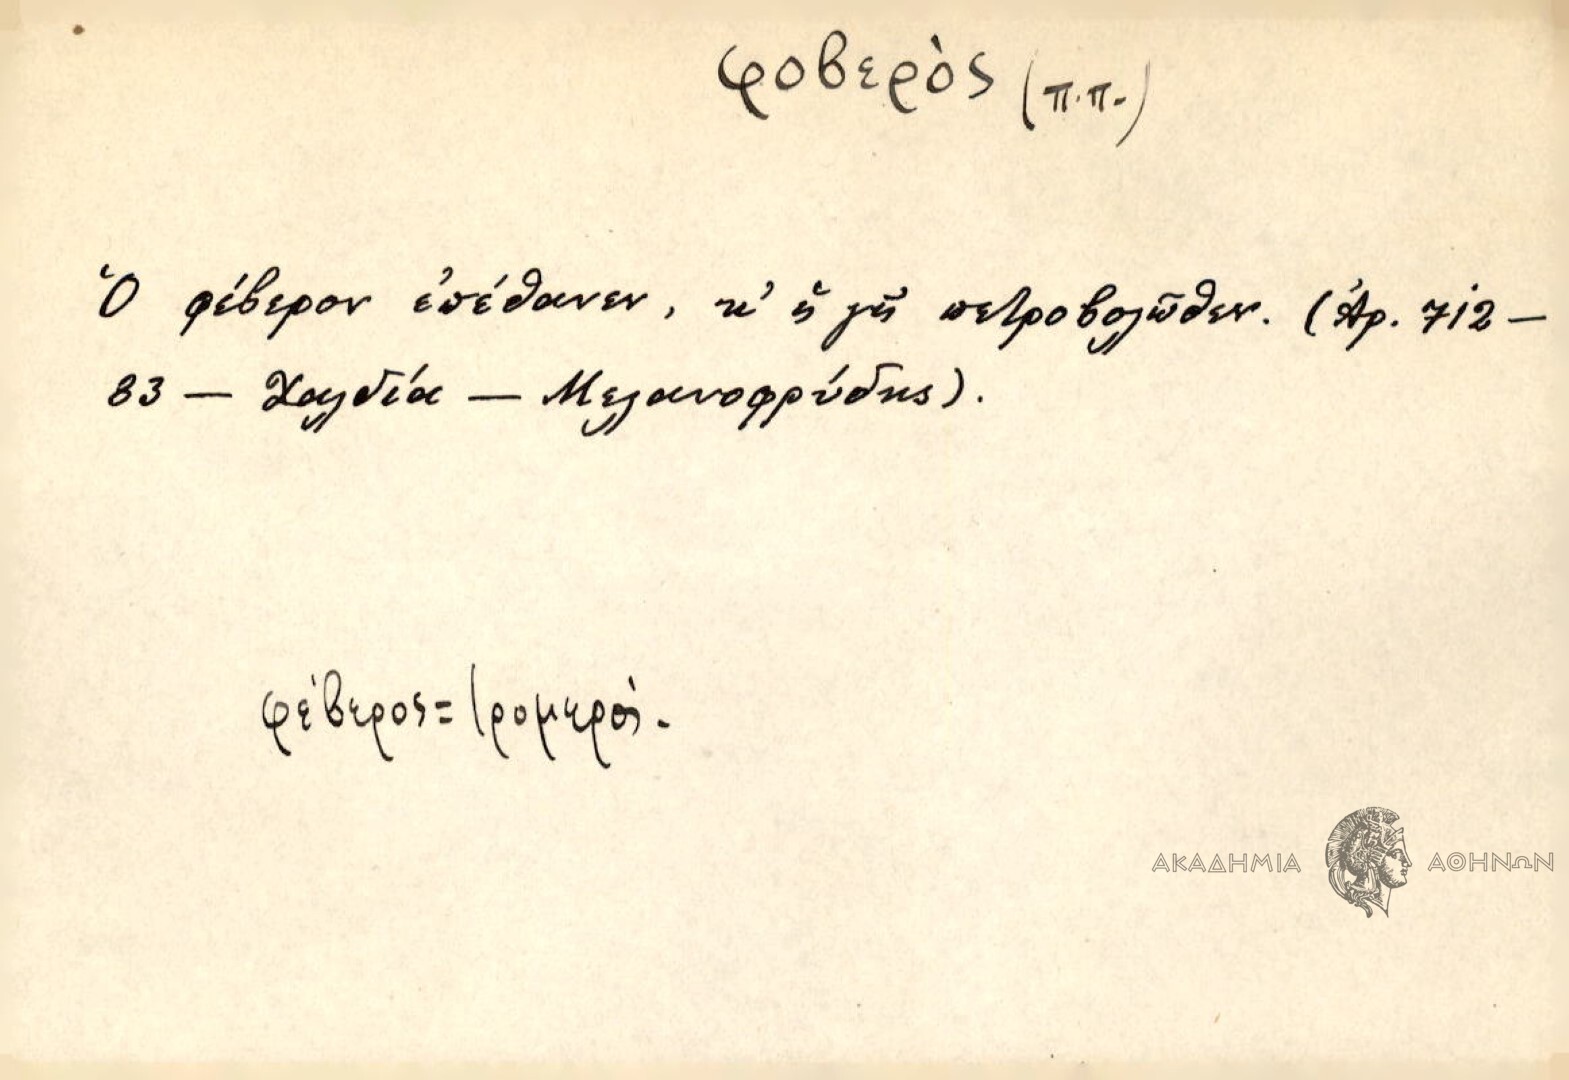 φοβερὸς (π.π.)
Ὁ φέβερον ἐπέθανεν, κ' ἡ γῆ πετροβολῶθεν. (Ἀρ. 712 –
83 – Χαλδία – Μελανοφρύδης).
φέβερος = τρομερός.
ΑΚΑΔΗΜΙΑ ΑΘΗΝΩΝ